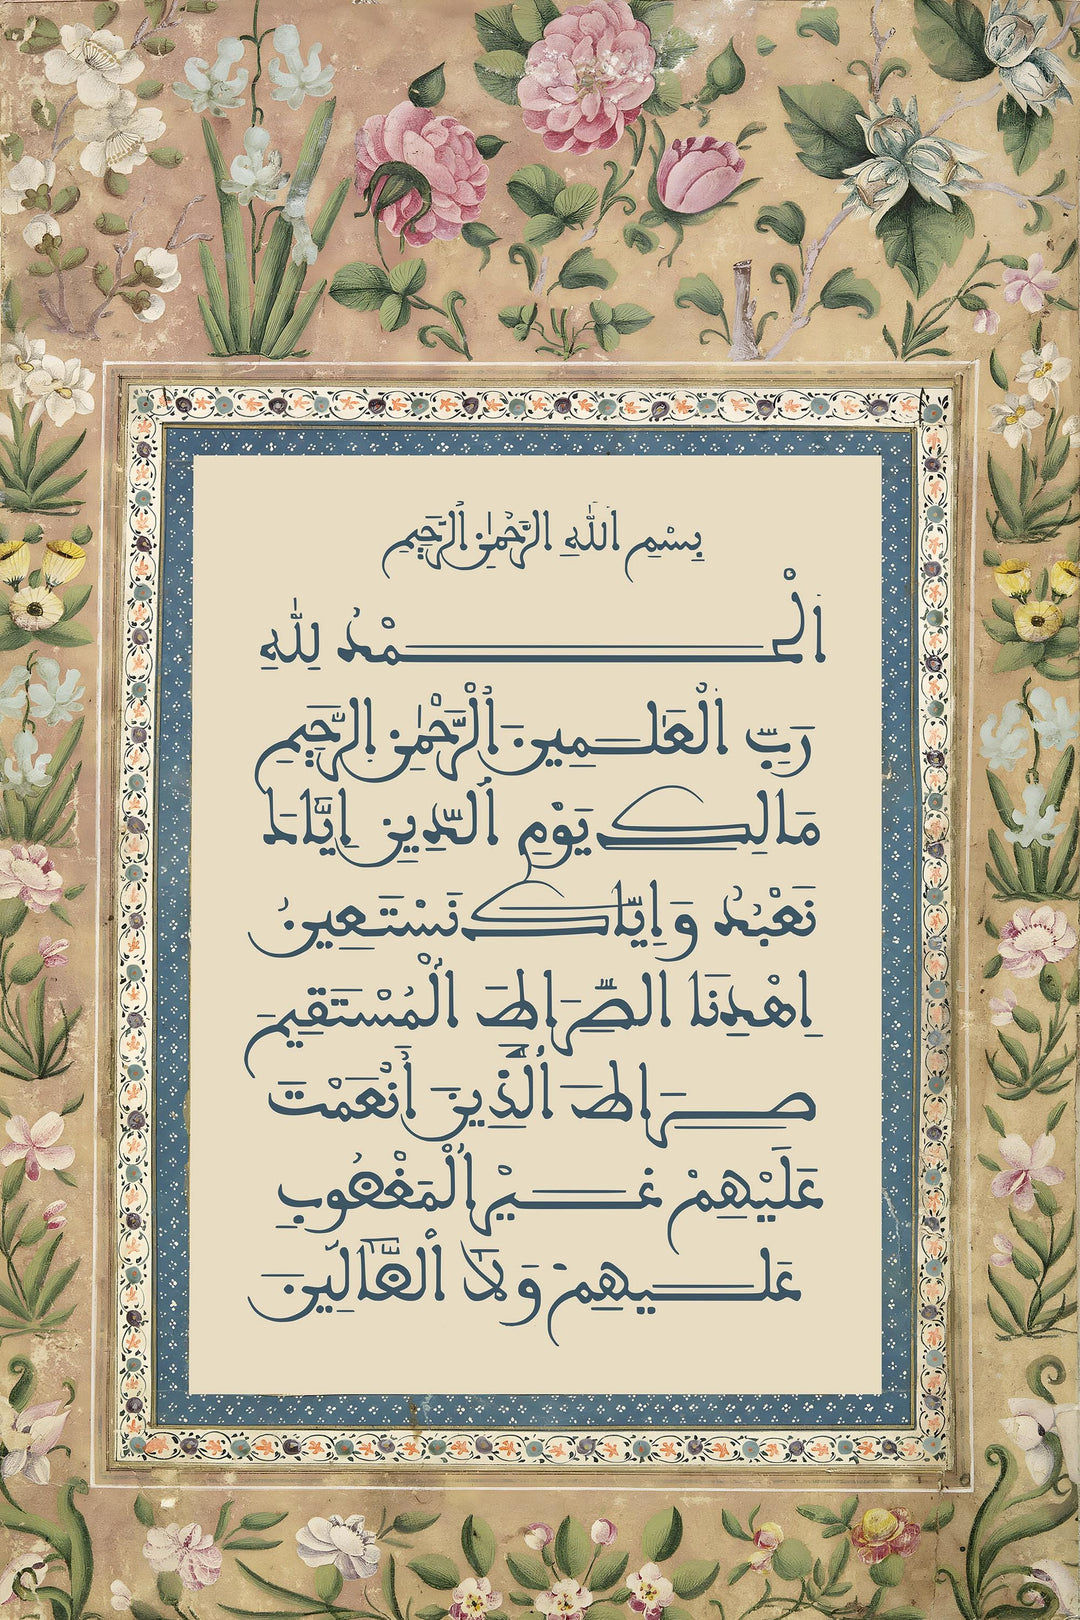 بِسْمِ اللَّهِ الرَّحْمَٰنِ الرَّحِيمِ
الْحَمْدُ لِلَّهِ
رَبِّ الْعَٰلَمِينَ الرَّحْمَٰنِ الرَّحِيمِ
مَالِكِ يَوْمِ الدِّينِ إِيَّاكَ
نَعْبُدُ وَإِيَّاكَ نَسْتَعِينُ
اهْدِنَا الصِّرَاطَ الْمُسْتَقِيمَ
صِرَاطَ الَّذِينَ أَنْعَمْتَ
عَلَيْهِمْ غَيْرِ الْمَغْضُوبِ
عَلَيْهِمْ وَلَا الضَّالِّينَ